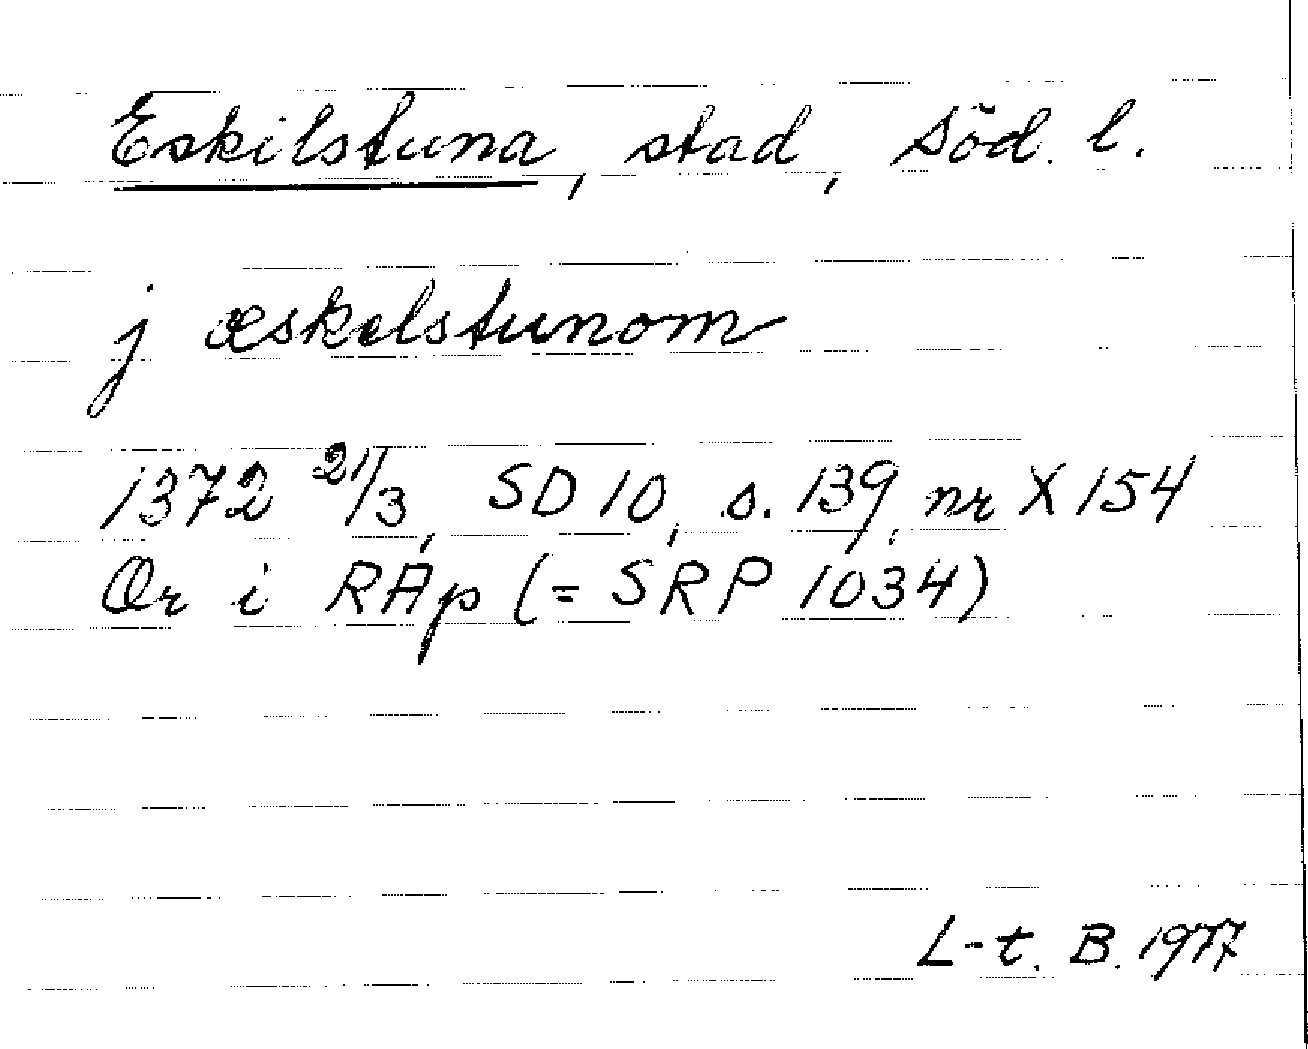 Eskilstuna, stad, Söd. l.
j æskelstunom
1372 21/3, SD 10, s. 139, nr X 154
Or i RAp (= SRP 1034)
L-t. B. 1977